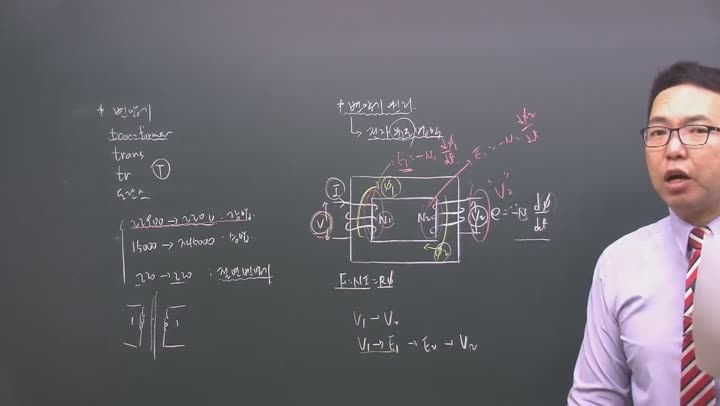 * 변압기
transformer
trans
tr Ⓣ
도란스
22900 → 220V : 강압
15000 → 345000 : 승압
220 → 220 : 절연변압기
1 1
* 변압기 원리
전자 유도
E₁ = -N₁ dφ₁/dt
E₂ = -N₂ dφ₂/dt
I φ₁ "V₂"
V N₁ N₂ V₂ e = -N dφ/dt
φ₂
F = NI = Rφ
V₁ → V₂
V₁ → E₁ → E₂ → V₂